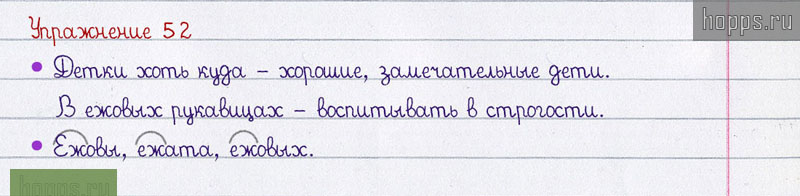 hopps.ru
Упражнение 52
• Детки хоть куда – хорошие, замечательные дети.
В ежовых рукавицах – воспитывать в строгости.
• Ежовы, ежата, ежовых.
hopps.ru